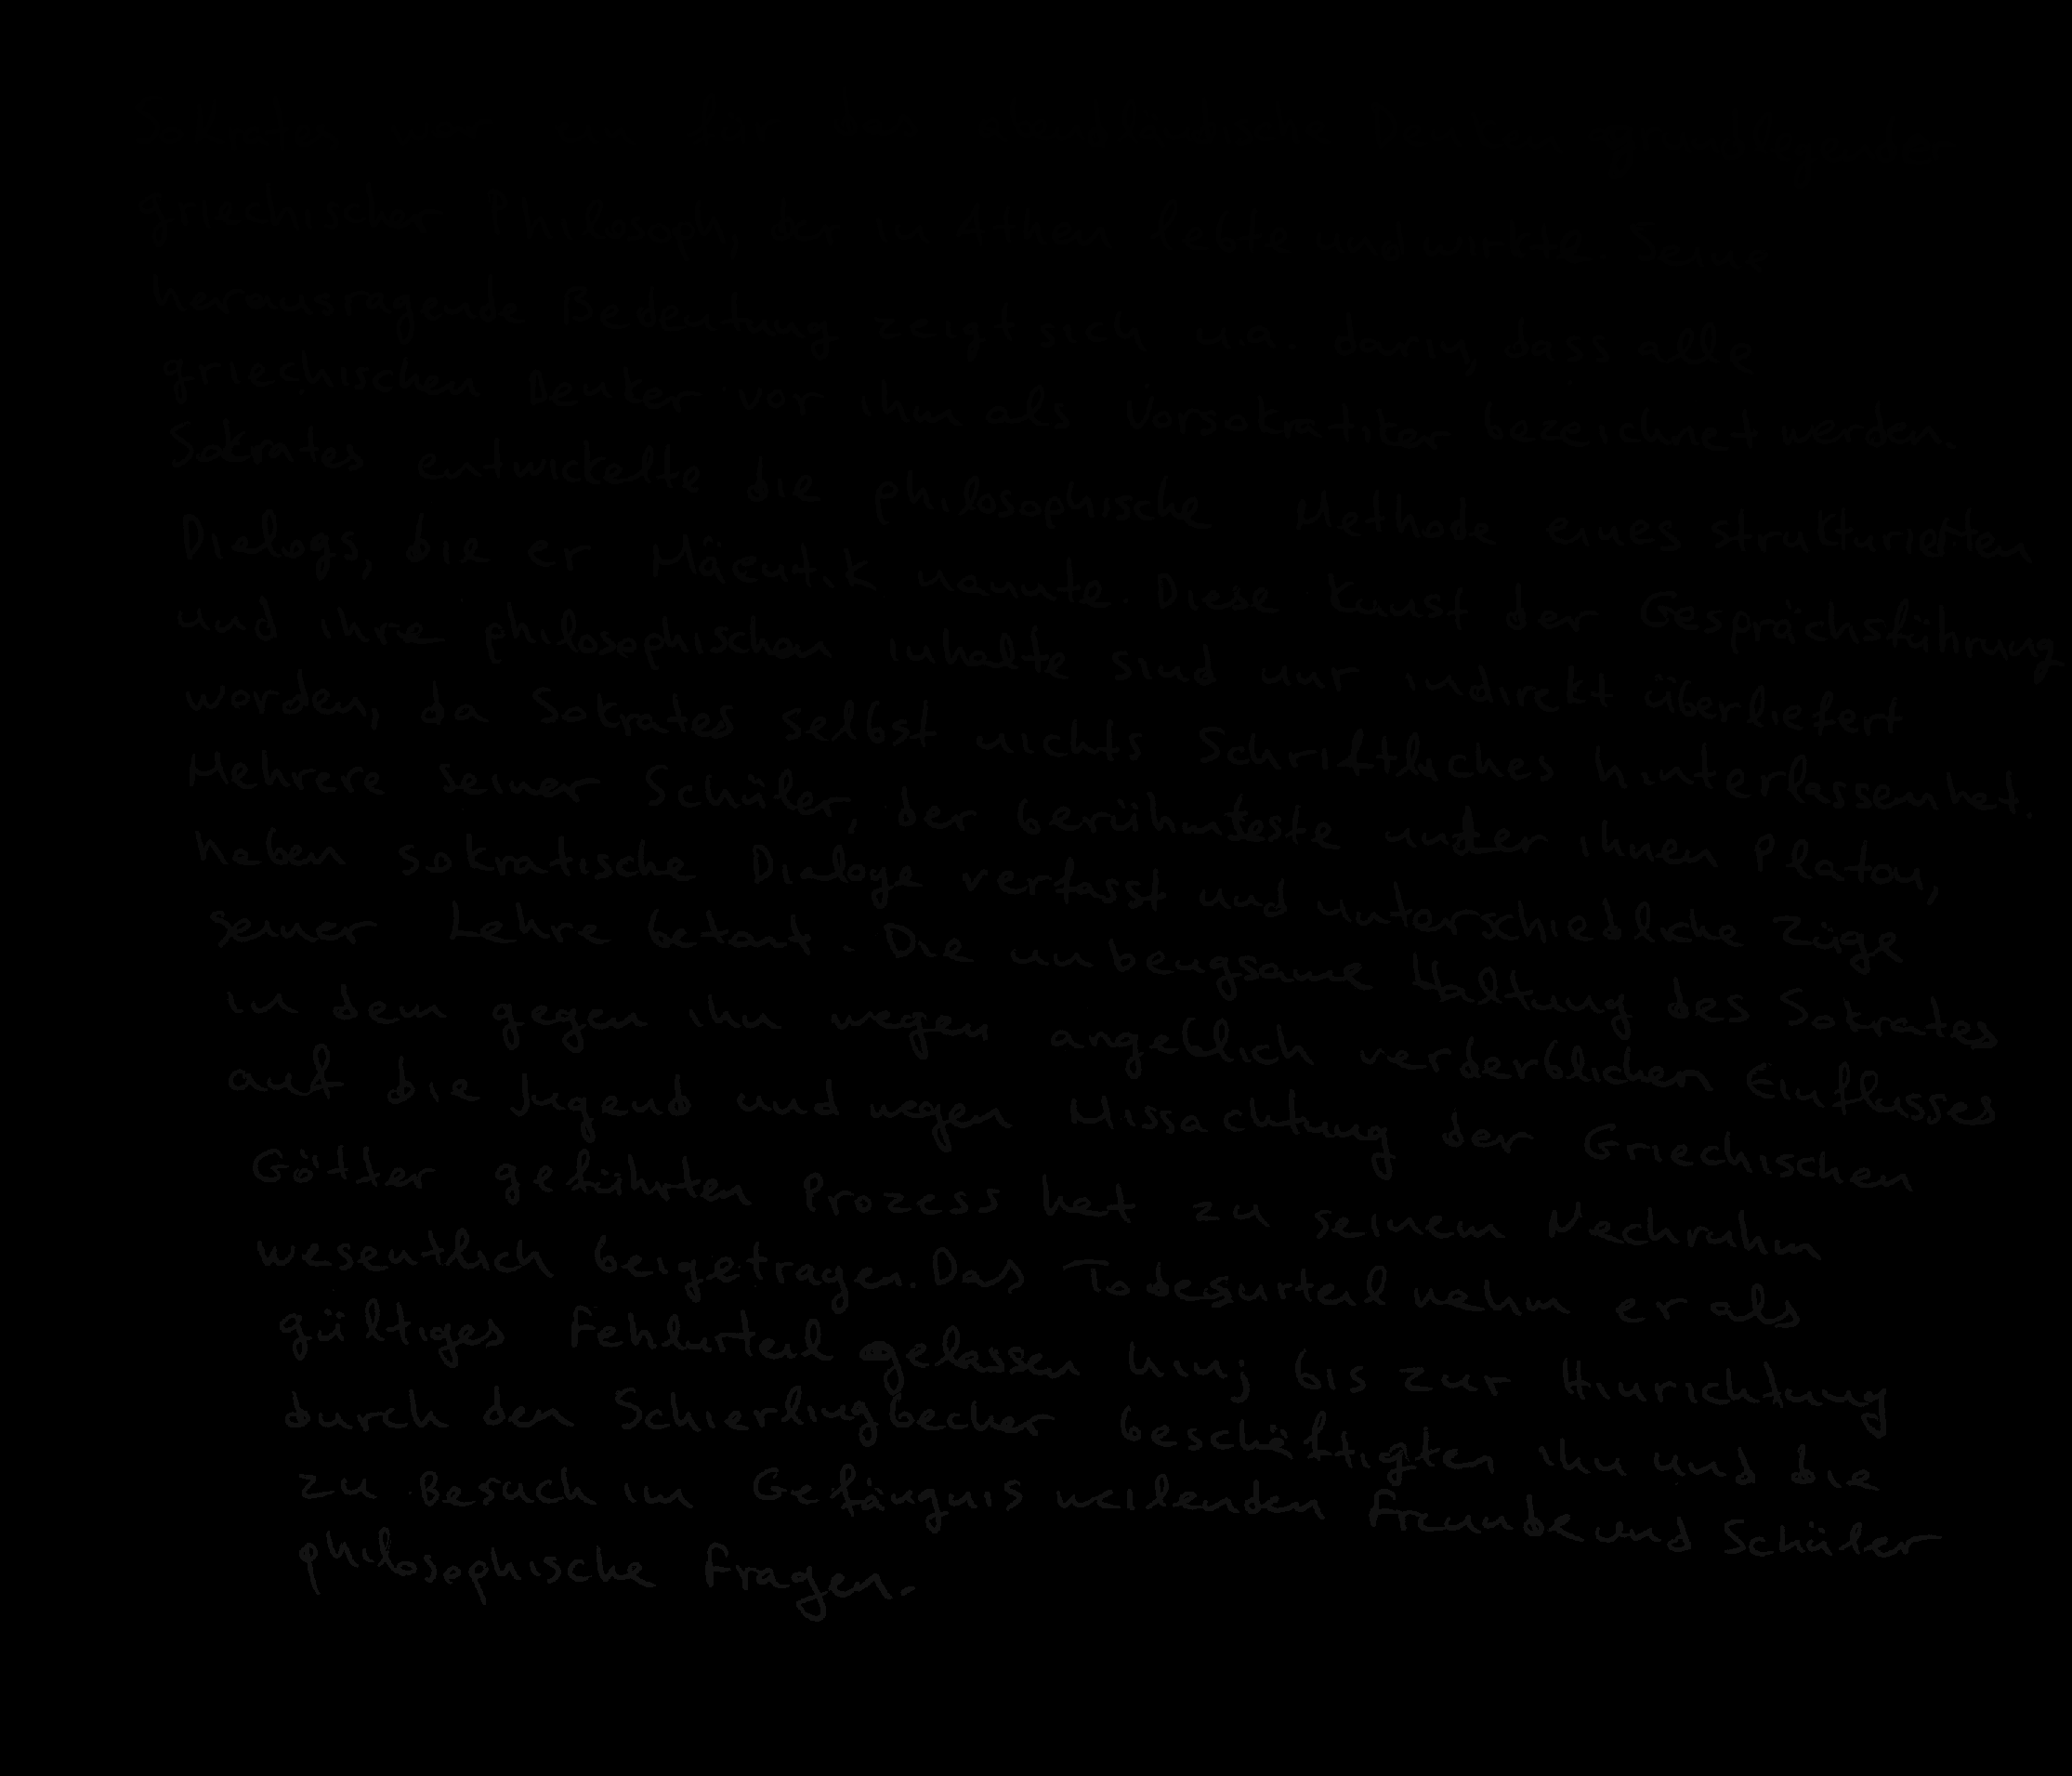 Sokrates war ein für das abendländische Denken grundlegender
griechischer Philosoph, der in Athen lebte und wirkte. Seine
herausragende Bedeutung zeigt sich u.a. darin, dass alle
griechischen Denker vor ihm als Vorsokratiker bezeichnet werden.
Sokrates entwickelte die philosophische Methode eines strukturierten
Dialogs, die er Mäeutik nannte. Diese Kunst der Gesprächsführung
und ihre philosophischen inhalte sind nur indirekt überliefert
worden, da Sokrates selbst nichts Schriftliches hinterlassen hat.
Mehrere seiner Schüler, der berühmteste unter ihnen Platon,
haben sokratische Dialoge verfasst und unterschiedliche Züge
seiner Lehre betont. Die unbeugsame Haltung des Sokrates
in dem gegen ihn wegen angeblich verderblichen Einflusses
auf die Jugend und wegen Missachtung der Griechischen
Götter geführten Prozess hat zu seinem Nachruhm
wesentlich beigetragen. Das Todesurteil nahm er als
gültiges Fehlurteil gelassen hin; bis zur Hinrichtung
durch den Schierlingbecher beschäftigten ihn und die
zu Besuch im Gefängnis weilenden Freunde und Schüler
philosophische Fragen.